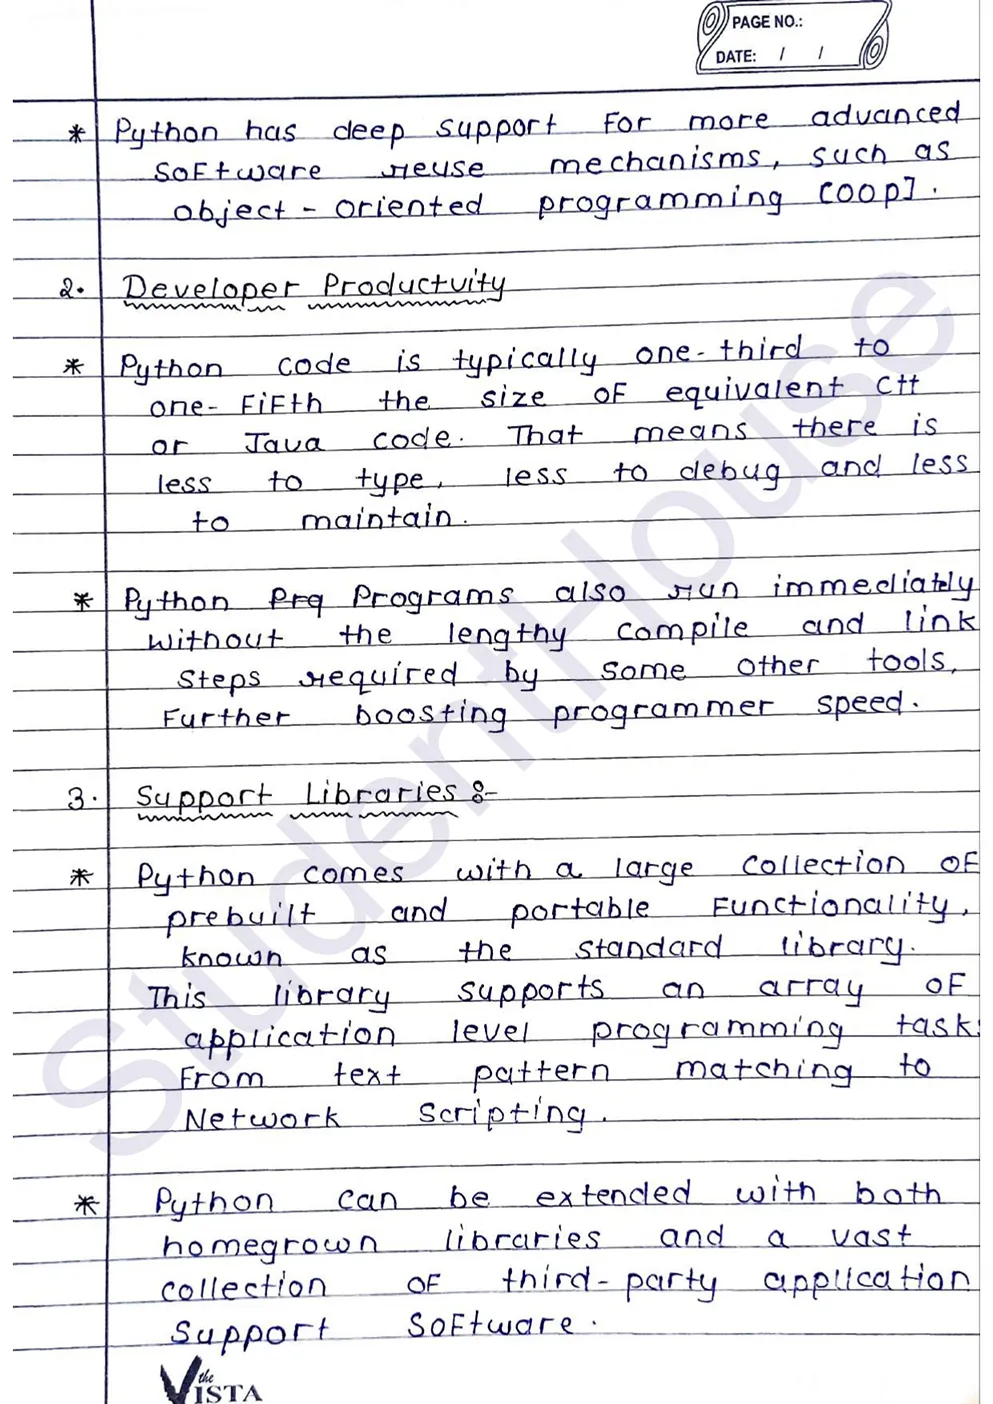 PAGE NO.:
DATE: / /
* Python has deep support For more advanced
SoFtware reuse mechanisms, such as
object-oriented programming [OOP].
2. Developer Productvity
* Python code is typically one-third to
one-FiFth the size oF equivalent C++
or Java code. That means there is
less to type, less to debug and less
to maintain.
* Python Prg Programs also run immediately
without the lengthy compile and link
Steps required by some other tools,
Further boosting programmer speed.
3. Support Libraries :-
* Python comes with a large collection oF
prebuilt and portable Functionality,
known as the standard library.
This library supports an array oF
application level programming tasks
From text pattern matching to
Network Scripting.
* Python can be extended with both
homegrown libraries and a vast
collection oF third-party application
Support SoFtware.
the VISTA
StudentHouse